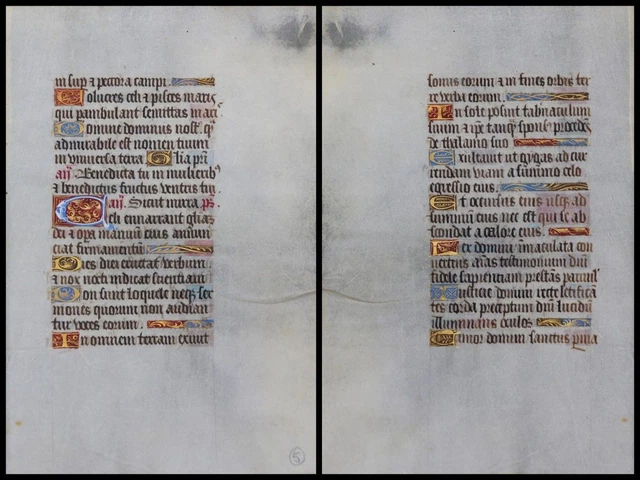 insup ⁊ pectora campi.
Volucres celi ⁊ pisces maris
qui pambulant semittas maris.
Domine dominus nost̄ q̄
admirabile est nomen tuum
in vniuersa terra Gl̄ia pr̄i
an̄. Benedicta tu in mulierib̄
⁊ benedictus fructus ventris tui.
an̄. Sicut mirra ps̄.
Celi ennarrant glīaȝ
dei ⁊ oꝑa manuū eius anūn
ciat firmamentū
Dies diei eructat verbum
⁊ nox nocti indicat scientiam
Non sunt loquele neqȝ ser
mones quorum non audian
tur voces eorum.
In omnem terram exiuit
sonus eorum ⁊ in fines orbis ter
re verba eorum.
In sole posuit tabnaculum
suum ⁊ ip̄e tanqȝ spons̄ procedēs
de thalamo suo
Exultauit ut gygas ad cur
rendam viam a summo celo
egressio eius.
Et occursus eius usqȝ ad
summum eius nec est qui se ab
scondat a calore eius.
Lex domini immaculata con
uertens aīas testimonium dn̄i
fidele sapientiam prestās paruul'
Iusticie domini recte letificā
tes corda preceptum dn̄i lucidū
illuminans oculos
Timor domini sanctus pma